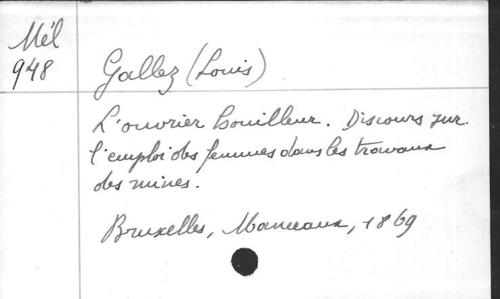 Mél
948
Gallez (Louis)
L'ouvrier houilleur. Discours sur
l'emploi des femmes dans les travaux
des mines.
Bruxelles, Manceaux, 1869